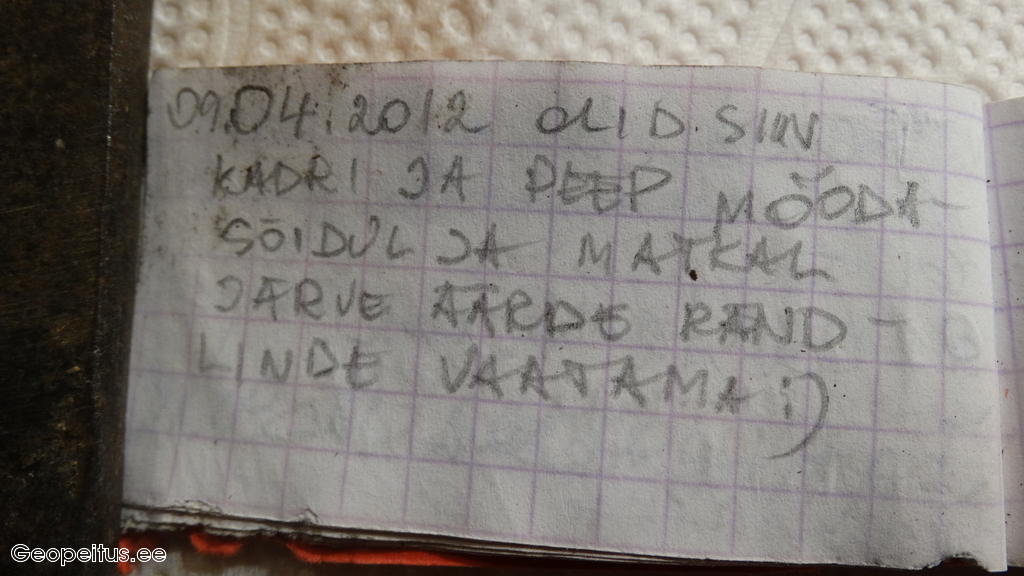 09.04.2012 OLID SIIN
KADRI JA PEEP MÖÖDA-
SÕIDUL JA MATKAL
JÄRVE ÄÄRDE RÄND-
LINDE VAATAMA :)
Geopeitus.ee